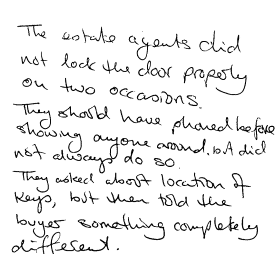 The estate agents did
not lock the door properly
on two occasions.
They should have phoned before
showing anyone around, but did
not always do so.
They asked about location of
keys, but then told the
buyer something completely
different.